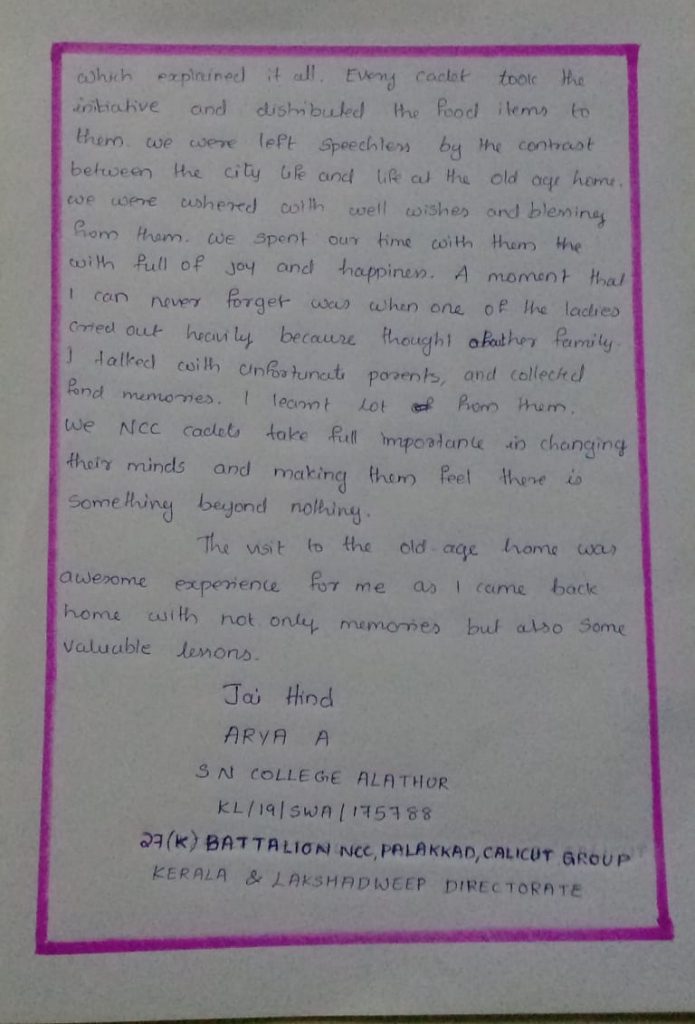 which explained it all. Every cadet took the
initiative and distributed the food items to
them. we were left speechless by the contrast
between the city life and life at the old age home.
we were ushered with well wishes and blessings
from them. we spent our time with them the
with full of joy and happiness. A moment that
I can never forget was when one of the ladies
cried out heavily because thought of her family.
I talked with unfortunate parents, and collected
fond memories. I learnt lot from them.
We NCC cadets take full importance in changing
their minds and making them feel there is
something beyond nothing.
The visit to the old-age home was
awesome experience for me as I came back
home with not only memories but also some
valuable lessons.
Jai Hind
ARYA A
S N COLLEGE ALATHUR
KL/19/SWA/175788
27(K) BATTALION NCC, PALAKKAD, CALICUT GROUP
KERALA & LAKSHADWEEP DIRECTORATE